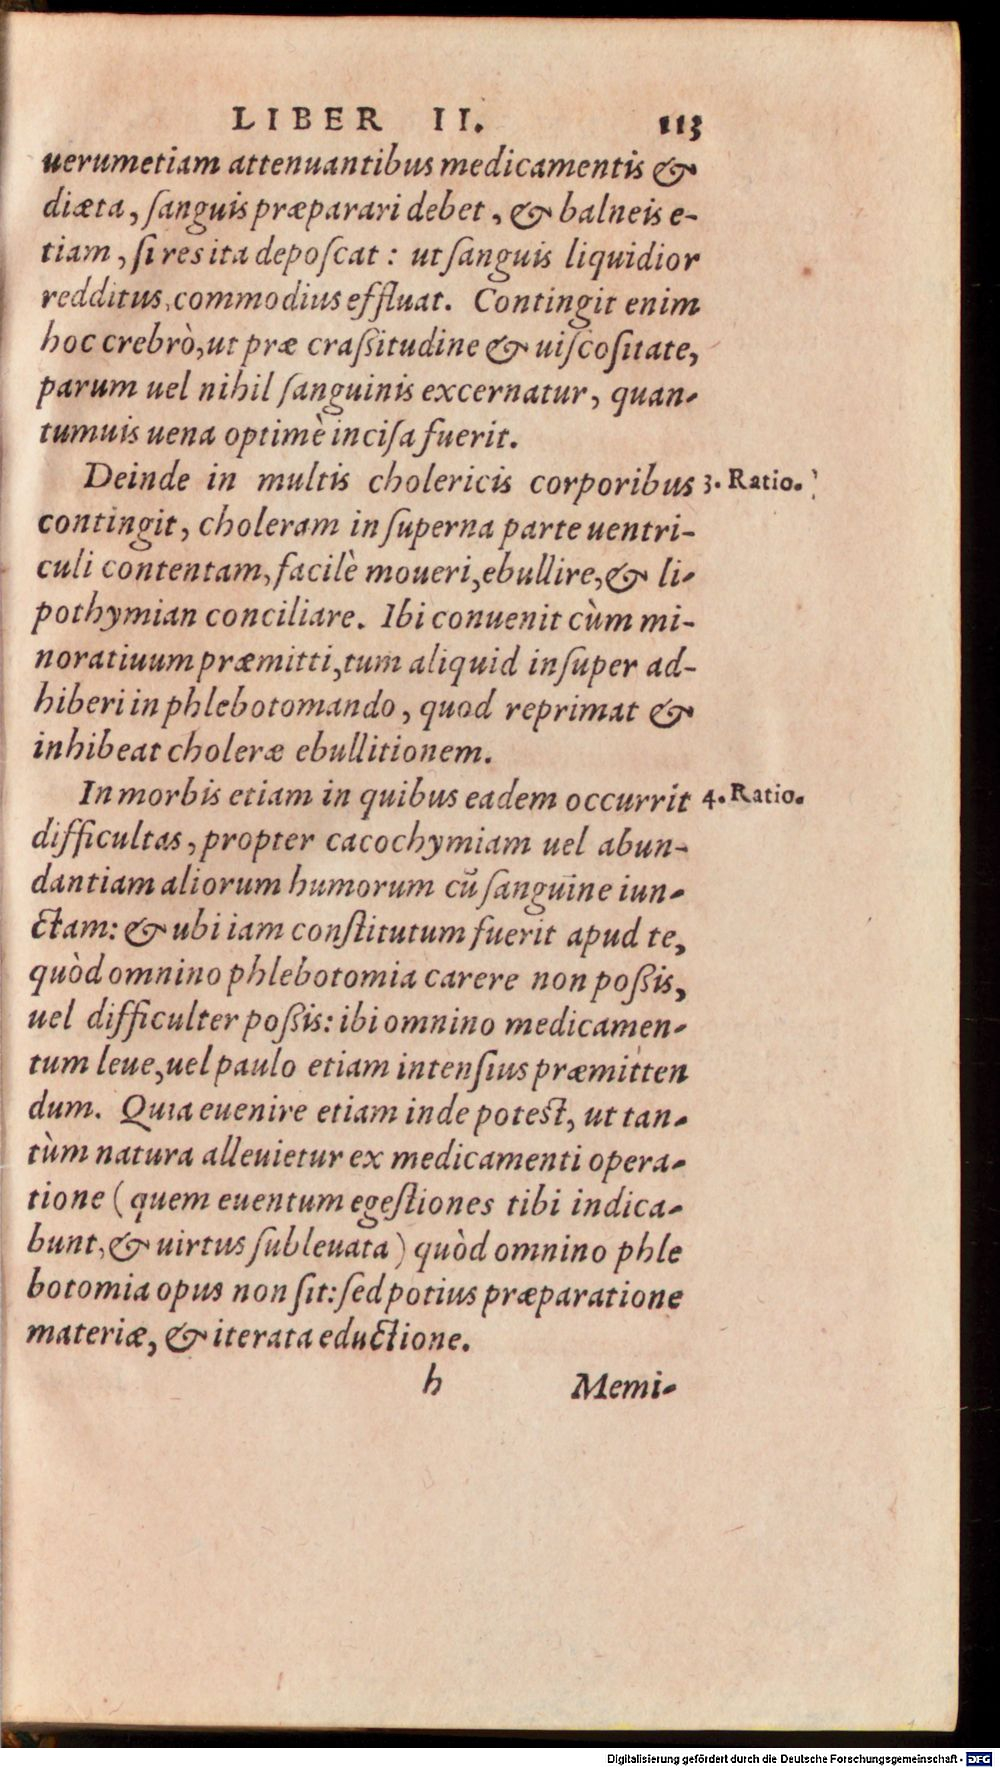 LIBER II. 113
uerumetiam attenuantibus medicamentis &
diæta, ſanguis præparari debet, & balneis e-
tiam, ſi res ita depoſcat: ut ſanguis liquidior
redditus, commodius effluat. Contingit enim
hoc crebrò, ut præ craſsitudine & uiſcoſitate,
parum uel nihil ſanguinis excernatur, quan-
tumuis uena optimè inciſa fuerit.
Deinde in multis cholericis corporibus 3. Ratio.
contingit, choleram in ſuperna parte uentri-
culi contentam, facilè moueri, ebullire, & li-
pothymian conciliare. Ibi conuenit cùm mi-
noratiuum præmitti, tum aliquid inſuper ad-
hiberi in phlebotomando, quod reprimat &
inhibeat choleræ ebullitionem.
In morbis etiam in quibus eadem occurrit 4. Ratio.
difficultas, propter cacochymiam uel abun-
dantiam aliorum humorum cū ſanguine iun-
ctam: & ubi iam conſtitutum fuerit apud te,
quòd omnino phlebotomia carere non poſsis,
uel difficulter poſsis: ibi omnino medicamen-
tum leue, uel paulo etiam intenſius præmitten
dum. Quia euenire etiam inde poteſt, ut tan-
tùm natura alleuietur ex medicamenti opera-
tione (quem euentum egeſtiones tibi indica-
bunt, & uirtus ſubleuata) quòd omnino phle
botomia opus non ſit: ſed potius præparatione
materiæ, & iterata eductione.
h Memi-
Digitalisierung gefördert durch die Deutsche Forschungsgemeinschaft - DFG